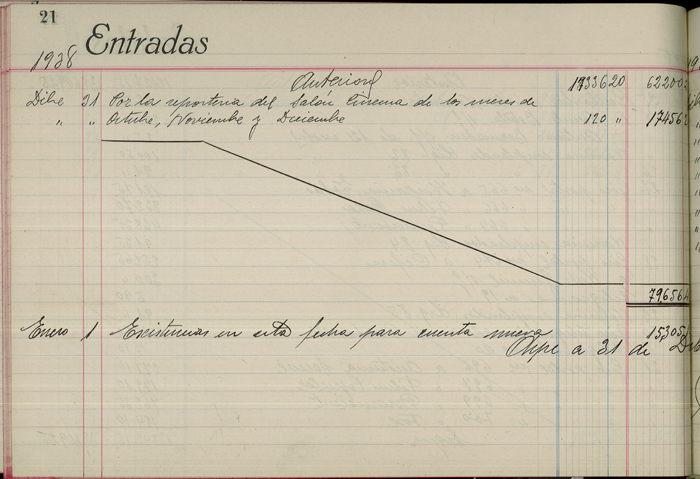 21
Entradas
1938
Anterior 1733620 62200
Dibre 31 Por la reporteria del Salón Cinema de los meses de
" " Octubre, Noviembre y Diciembre 120 " 17456
79656
Enero 1 Existencias en esta fecha para cuenta nueva 15305
a 31 de